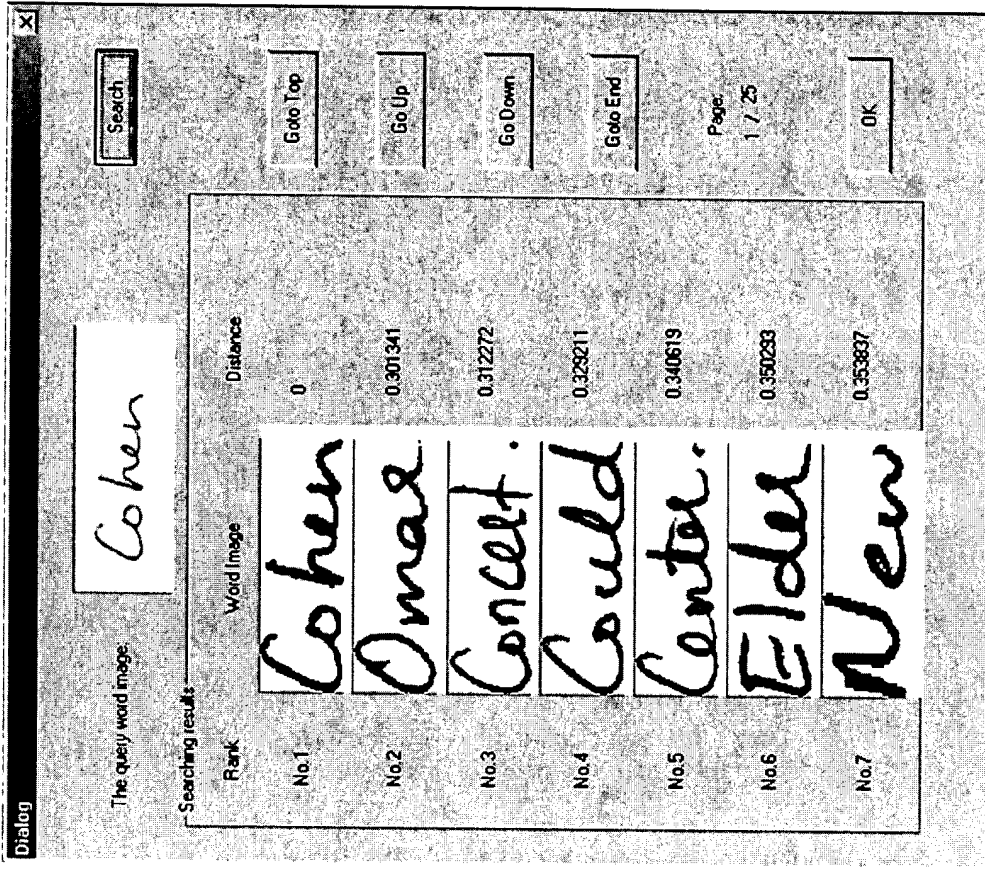 Dialog
The query word image: Cohen Search
Searching results
Rank Word Image Distance
No.1 Cohen 0
No.2 Omar 0.301341
No.3 Concert. 0.312272
No.4 Could 0.329211
No.5 Center. 0.340619
No.6 Elder 0.350293
No.7 New 0.353837
Goto Top
Go Up
Go Down
Goto End
Page:
1 / 25
OK